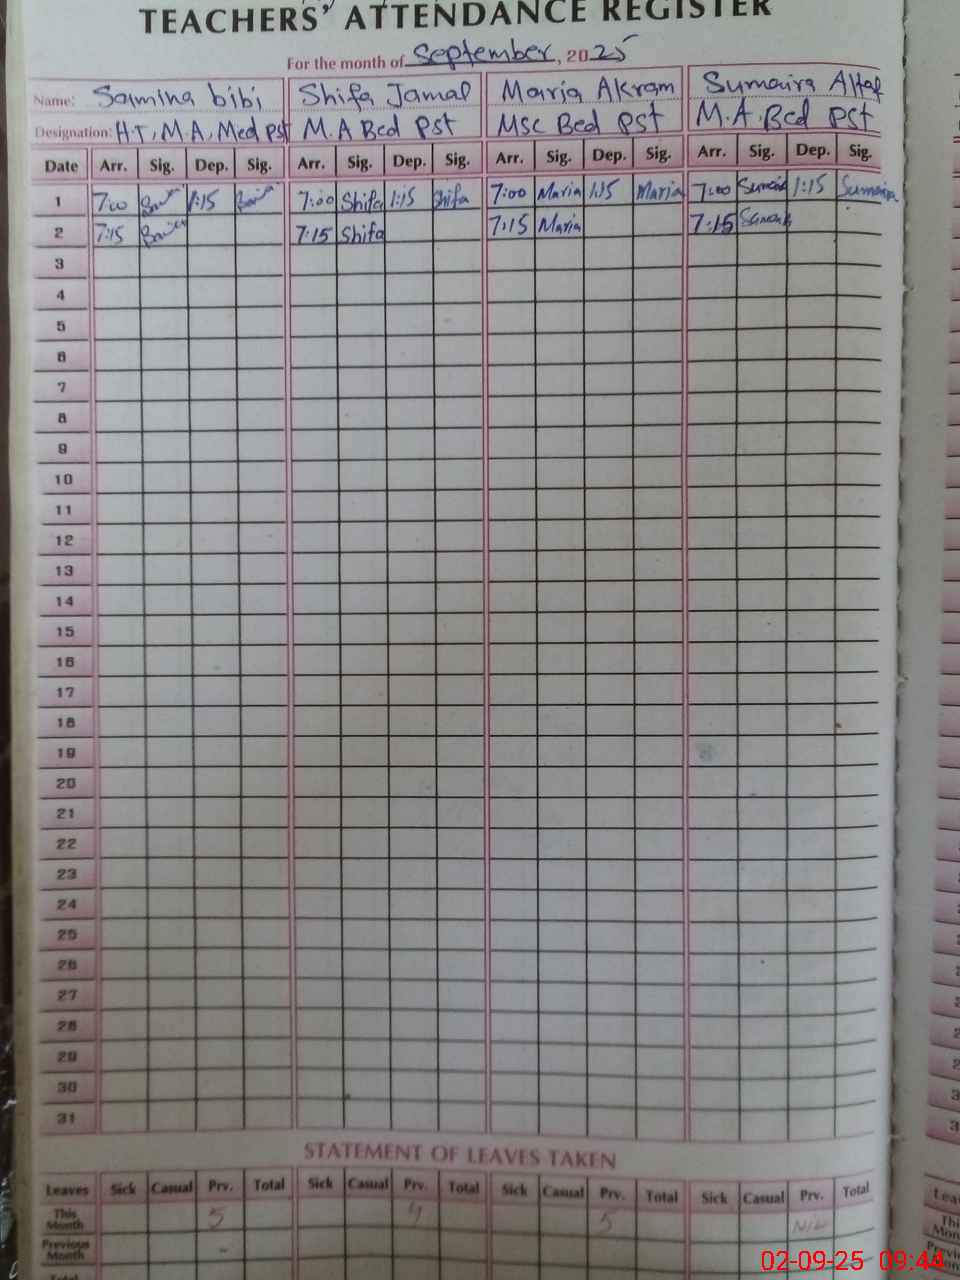 TEACHERS' ATTENDANCE REGISTER
For the month of September, 2025
Name: Samina bibi Shifa Jamal Maria Akram Sumaira Altaf
Designation: H.T, M.A, Med pst M.A Bed Pst MSc Bed pst M.A.Bed pst
Date Arr. Sig. Dep. Sig. Arr. Sig. Dep. Sig. Arr. Sig. Dep. Sig. Arr. Sig. Dep. Sig.
1 7:00 1:15 7:00 Shifa 1:15 Shifa 7:00 Maria 1:15 Maria 7:00 1:15 Sumaira
2 7:15 7:15 Shifa 7:15 Maria 7:15
3
4
5
6
7
8
9
10
11
12
13
14
15
16
17
18
19
20
21
22
23
24
25
26
27
28
29
30
31
STATEMENT OF LEAVES TAKEN
Leaves Sick Casual Prv. Total Sick Casual Prv. Total Sick Casual Prv. Total Sick Casual Prv. Total
This Month 5 4 5 Nil
Previous Month -
Total
02-09-25 09:44